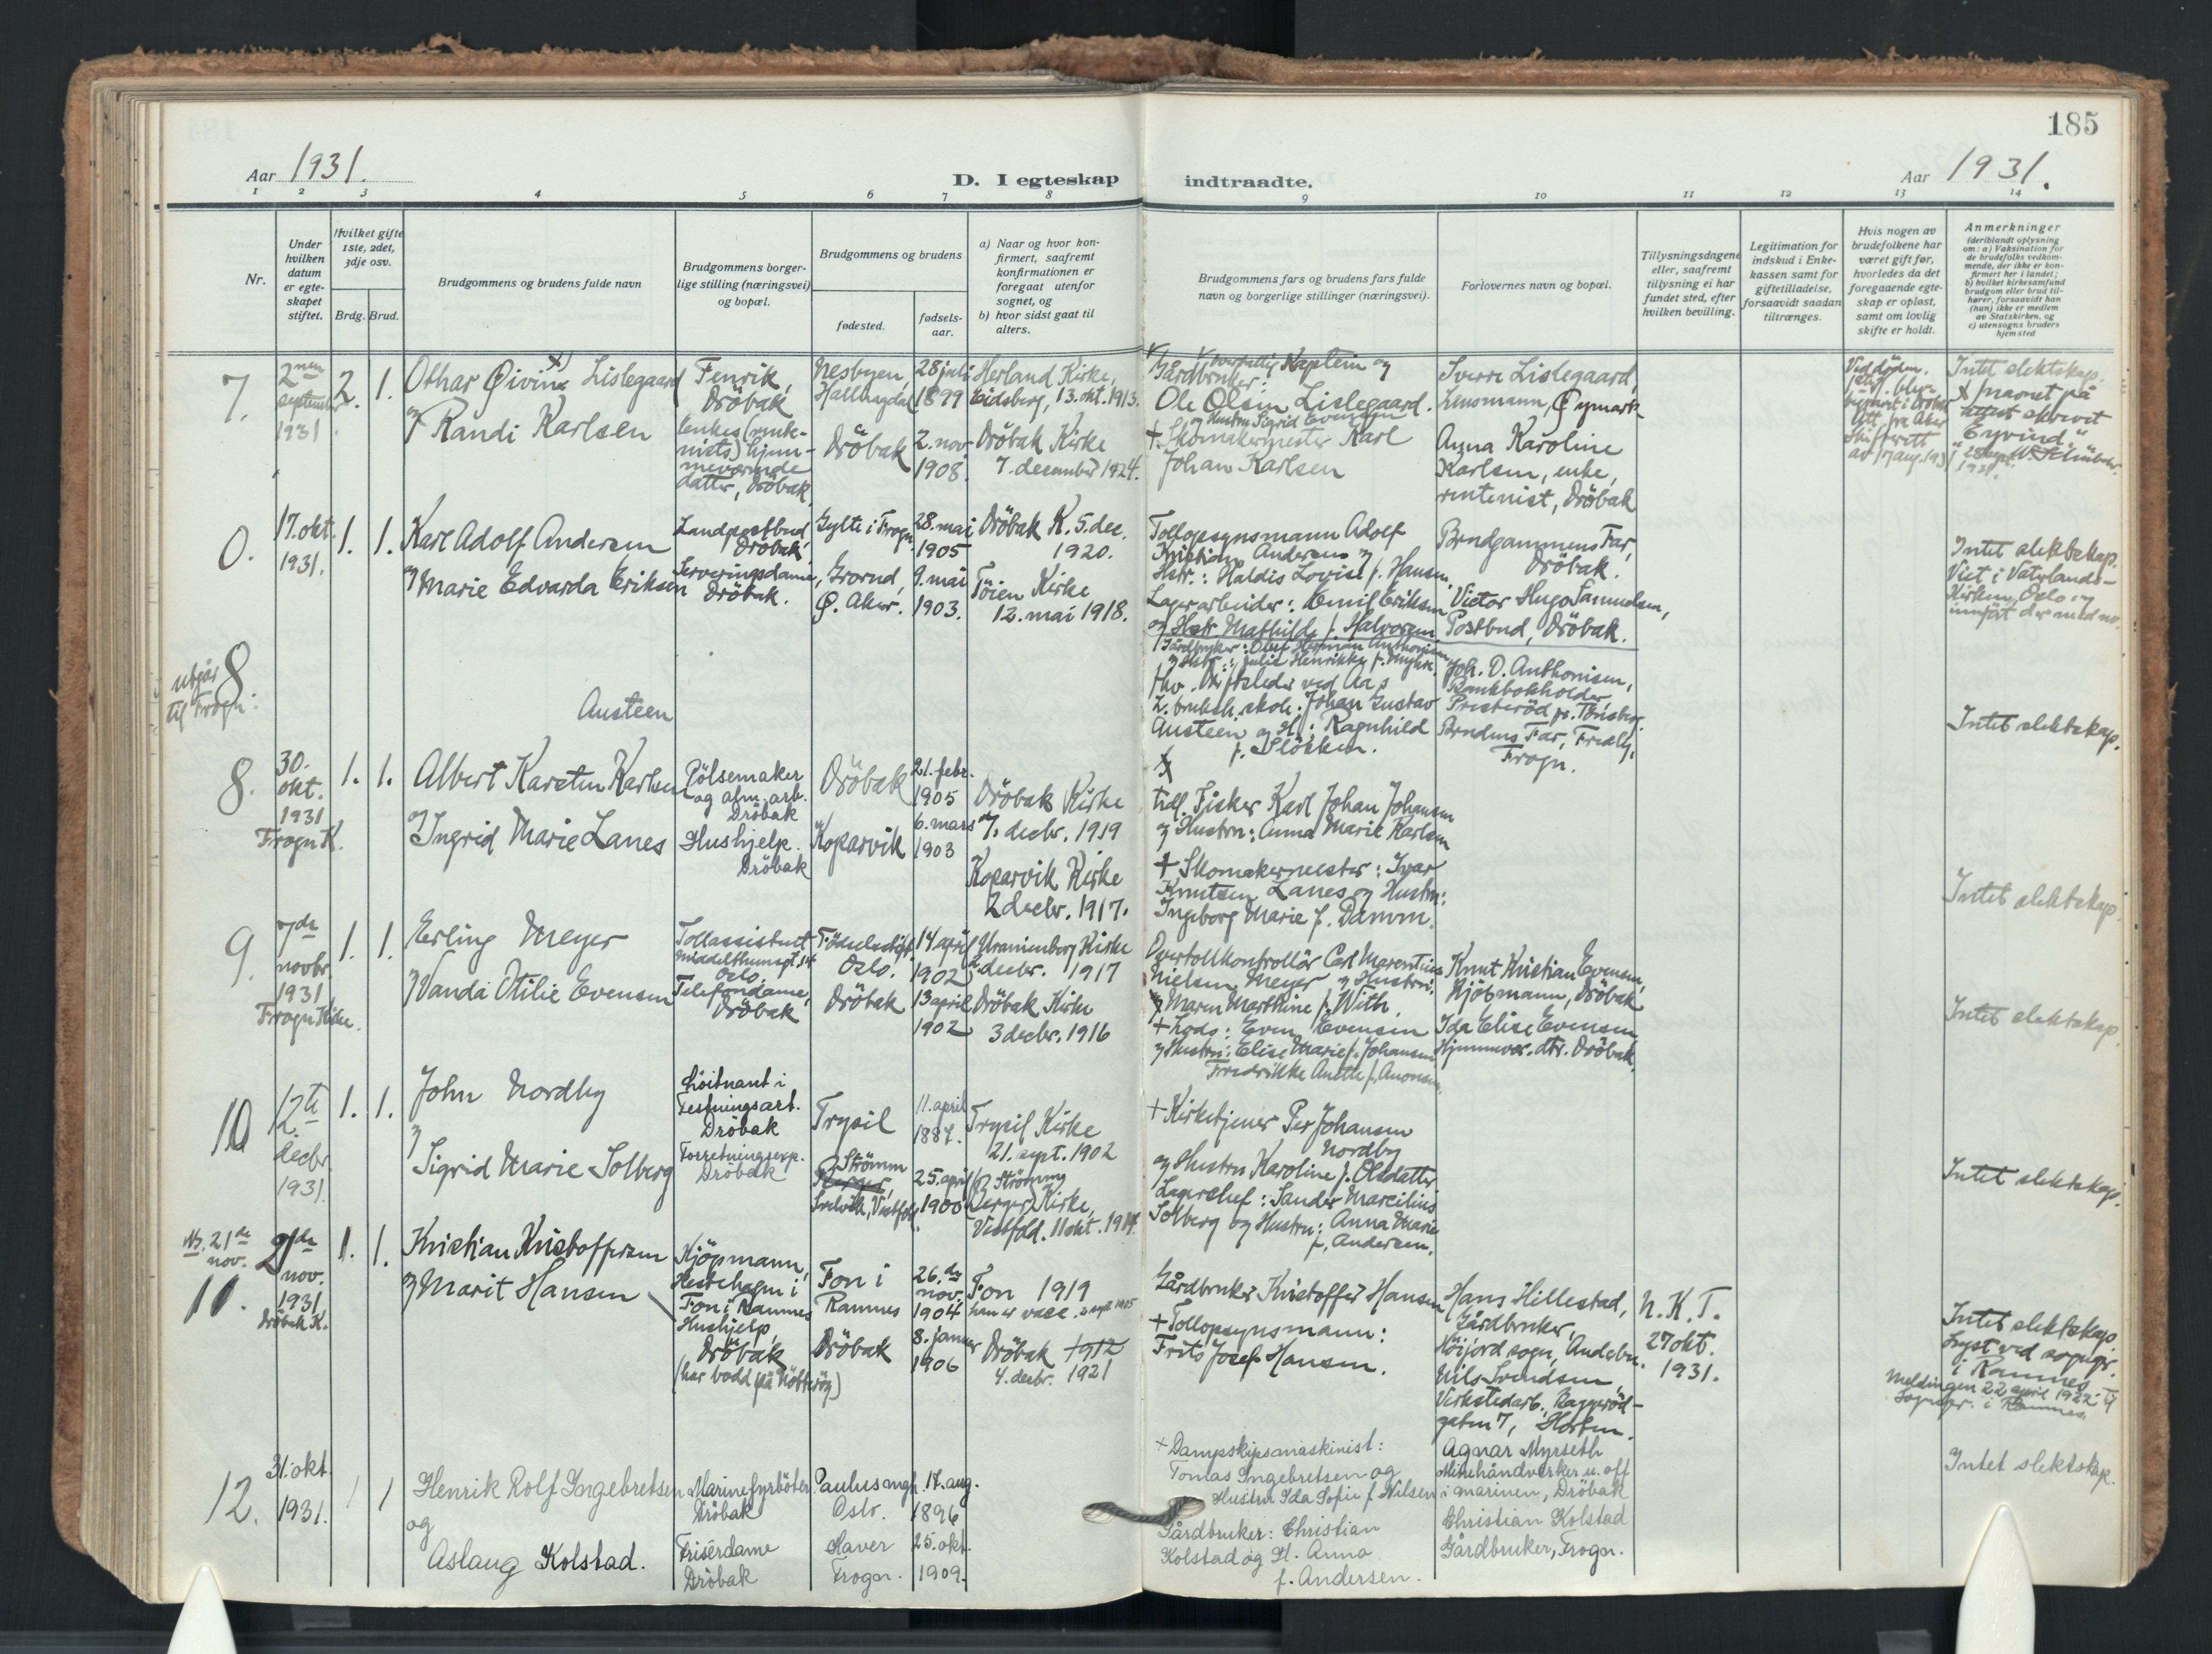 185
Aar 1931.
D. I egteskap indtraadte.
Aar 1931.
1 2 3 4 5 6 7 8 9 10 11 12 13 14
Nr.
Under hvilken datum er egteskapet stiftet.
Hvilket gifte 1ste, 2det, 3dje osv.
Brdg. Brud.
Brudgommens og brudens fulde navn
Brudgommens borgerlige stilling (næringsvei) og bopæl.
Brudgommens og brudens
fødested.
fødselsaar.
a) Naar og hvor konfirmert, saafremt konfirmationen er foregaat utenfor sognet, og
b) hvor sidst gaat til alters.
Brudgommens fars og brudens fars fulde navn og borgerlige stillinger (næringsvei).
Forlovernes navn og bopæl.
Tillysningsdagene eller, saafremt tillysning ei har fundet sted, efter hvilken bevilling.
Legitimation for indskud i Enkekassen samt for giftetilladelse, forsaavidt saadan tiltrænges.
Hvis nogen av brudefolkene har været gift før, hvorledes da det foregaaende egteskap er opløst, samt om lovlig skifte er holdt.
Anmerkninger
(deriblandt oplysning om: a) Vaksination for de brudefolks vedkommende, der ikke er konfirmert her i landet; b) hvilket kirkesamfund brudgom eller brud tilhører, forsaavidt han (hun) ikke er medlem av Statskirken, og c) utensogns bruders hjemsted
7.
2nen september 1931
2. 1.
Othar Øivind x) Lislegaard
og Randi Karlsen
Fenrik, Dröbak
datter, Dröbak
Nesbyen, Hallingdal
Dröbak
28 juli 1899
2. nov. 1908.
Herland Kirke, Eidsberg, 13. okt. 1913.
Dröbak Kirke
7. december 1924.
Gårdbruker: Kaptein og
Ole Olsen Lislegaard.
og Hustru Sigrid Evensen
+ Skomakermester Karl
Johan Karlsen
Sverre Lislegaard,
Lensmann, Øymark
Anna Karoline
Karlsen, enke,
rentenist, Dröbak
Ved døden.
Intet slektskap.
x) navnet på
attest skrevet
"Eyvind."
0.
17. okt. 1931.
1. 1.
Karl Adolf Andersen
og Marie Edvarda Eriksen
Landpostbud, Dröbak
Serveringsdame, Dröbak.
Gylte i Frogn
Grorud, Ø. Aker.
28. mai 1905
9. mai 1903.
Dröbak K. 5. dec. 1920.
Töien Kirke
12. mai 1918.
Tollopsynsmann Adolf
Kristian Andersen og
Hstr.: Haldis Lovise f. Hansen.
Lagerarbeider: Emil Eriksen
og Hstr. Mathilde f. Halvorsen.
Brudgommens Far, Dröbak.
Victor Hugo Samuelsen,
Postbud, Dröbak.
Intet slektskap.
Viet i Vaterlands-
Kirken, Oslo og
innført der med no.
utgår 8.
til Frogn.
Austeen
Gårdbruker: Olaf Herman Anthonisen
og Hstr.: Julie Henrikke f. Myhre
fhv. Driftsleder ved Aas
L. bruksh. skole: Johan Gustav
Austeen og H.: Ragnhild
f. Slökken.
Joh. O. Anthonisen,
Bankbokholder,
Presteröd pr. Tönsberg.
Brudens Far, Fredly,
Frogn.
Intet slektskap.
8.
30. okt. 1931
Frogn K.
1. 1.
Albert Karsten Karlsen
og Ingrid Marie Lanes
Pölsemaker og alm. arb. Dröbak
Hushjelp. Dröbak
Dröbak
Kopervik
21. febr. 1905
6. mars 1903
Dröbak Kirke
7. decbr. 1919
Kopervik Kirke
2 decbr. 1917.
tidl. Fisker Karl Johan Johansen
og Hustru: Anna Marie Karlsen
+ Skomakermester: Ivar
Knutsen Lanes og Hustru:
Ingeborg Marie f. Damm.
Intet slektskap.
9.
7de novbr. 1931
Frogn Kirke.
1. 1.
Erling Meyer
og Vanda Otilie Evensen
Tollassistent
Middelthunsgt. 14
Oslo.
Telefondame,
Dröbak
Födselsstift. Oslo.
Dröbak
14 april 1902
13 april 1902
Uranienborg Kirke
2 decbr. 1917
Dröbak Kirke
3 decbr. 1916
Overtollkontrollör Carl Marentius
Nielsen Meyer og Hustru:
Maren Marthine f. With.
+ Lods: Even Evensen
og Hustru: Elise Marie f. Johansen
Fredrikke Anette f. Anonsen
Knut Kristian Evensen,
Kjöbmann, Dröbak
Ida Elise Evensen,
Hjemmevær. dtr. Dröbak
Intet slektskap.
10
12te decbr 1931.
1. 1.
John Nordby
og Sigrid Marie Solberg
Löitnant i
Festningsart.
Dröbak
Forretningsexp.
Dröbak
Trysil
Strömm
Berger,
Svelvik, Vestfold
11. april 1887.
25. april 1900
Trysil Kirke
21. sept. 1902
(Strömm)
Berger Kirke,
Vestfold. 11 okt. 1914.
+ Kirketjener Per Johansen
Nordby
og Hustru Karoline f. Olsdatter
Lagerchef: Sander Marcilius
Solberg og Hustru: Anna Marie
f. Andersen.
Intet slektskap.
Nb. 21de nov.
11.
21de nov. 1931
Dröbak K.
1. 1.
Kristian Kristoffersen
og Marit Hansen
Kjöpmann,
Hestehagen i
Fon i Ramnes
Hushjelp,
Dröbak
(har bodd på Nötteröy)
Fon i Ramnes
Dröbak
26. de nov. 1904
8. januar 1906
Fon 1919
Dröbak 1912
4. decbr. 1921
Gårdbruker Kristoffer Hansen
+ Tollopsynsmann:
Frits Josef Hansen.
Hans Hillestad,
Gårdbruker,
Höijord sogn, Andebu.
Nils Svendsen,
Verkstedarb. Baggeröd-
gaten 7, Horten.
N. K. T.
27 okt.
1931.
Intet slektskap.
Lyst ved sognepr.
i Ramnes
Meldingen 22 april 1922 til
Sognepr. i Ramnes.
12.
31. okt. 1931.
1 1
Henrik Rolf Ingebretsen
og
Aslaug Kolstad.
Marinefyrböter
Dröbak
Frisérdame
Dröbak
Paulus mgh.
Oslo.
Haver
Frogn.
17. aug. 1896
25. okt. 1909.
+ Dampskipsmaskinist:
Tomas Ingebretsen og
Hustru Ida Sofie f. Nilsen
Gårdbruker: Christian
Kolstad og H. Anna
f. Andersen.
Agnar Myrseth
Minehåndverker u. off
i marinen, Dröbak
Christian Kolstad
Gårdbruker, Frogn.
Intet slektskap.